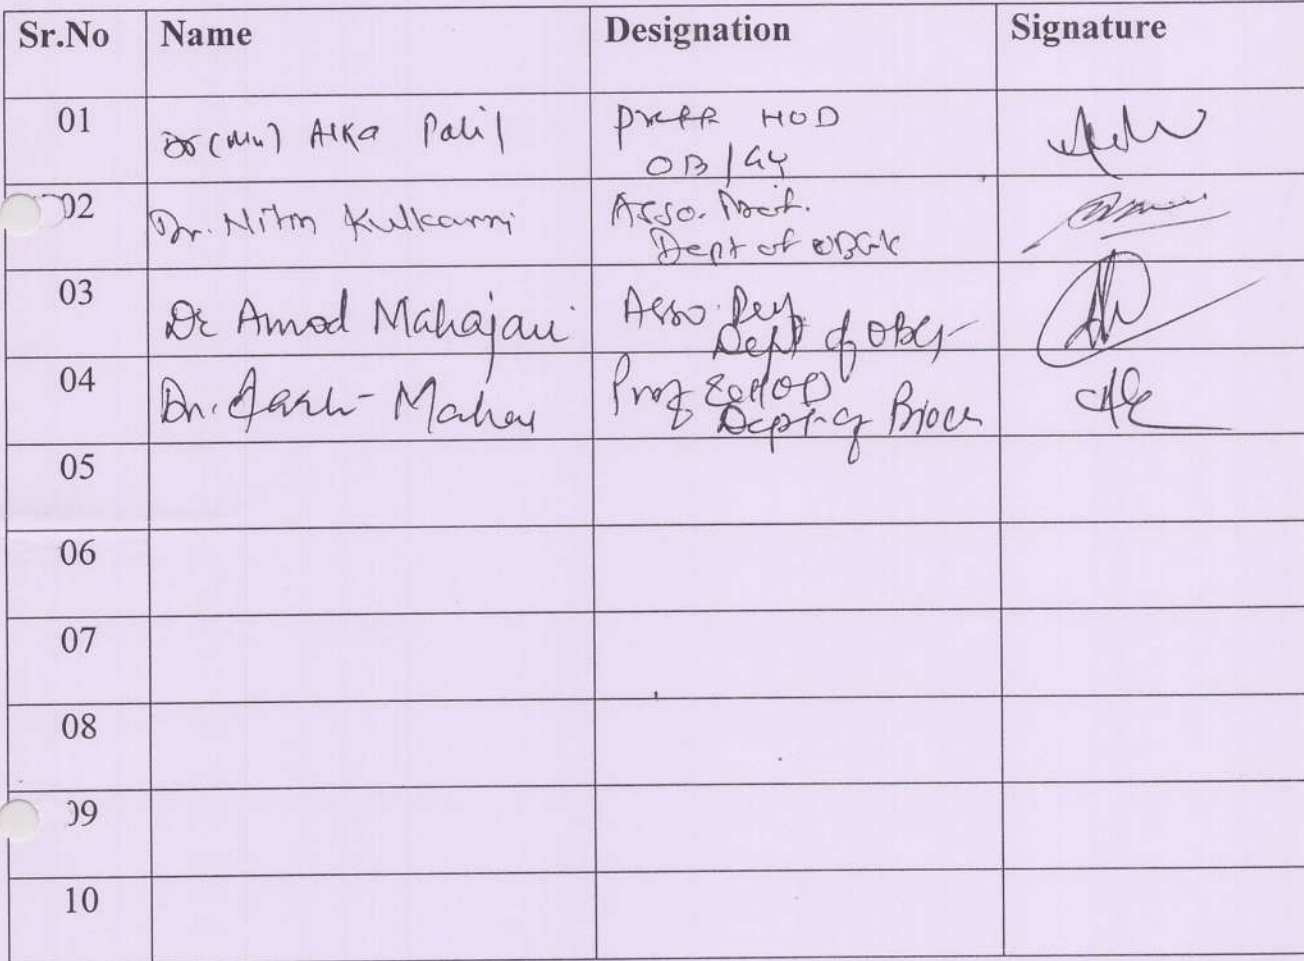 Sr.No Name Designation Signature
01 Dr (Mrs) Alka Patil Proff HOD
OB/GY
02 Dr. Nitin Kulkarni Asso. Prof.
Dept of OBGY
03 Dr Amod Mahajan Asso. Prof
Dept of OBGY
04 Dr. Mahen Prof & HOD
Dept of
05
06
07
08
09
10